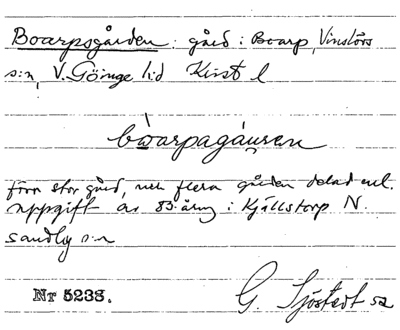 Boarpsgården : gård i Boarp, Vinslövs
s:n, V. Göinge hd Krist l
bòarpagáuren
förr stor gård, nu flera gårdar delad enl.
uppgift av 83-åring i Kjällstorp N.
Sandby s:n
Nr 5238.
G. Sjöstedt 52